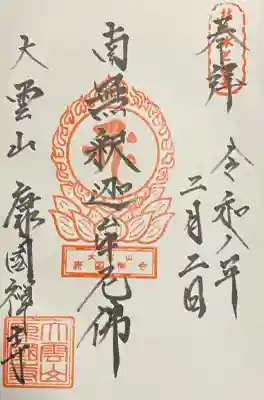 奉拝
令和八年
二月二日
南無釈迦牟尼佛
大雲山 康國禅寺